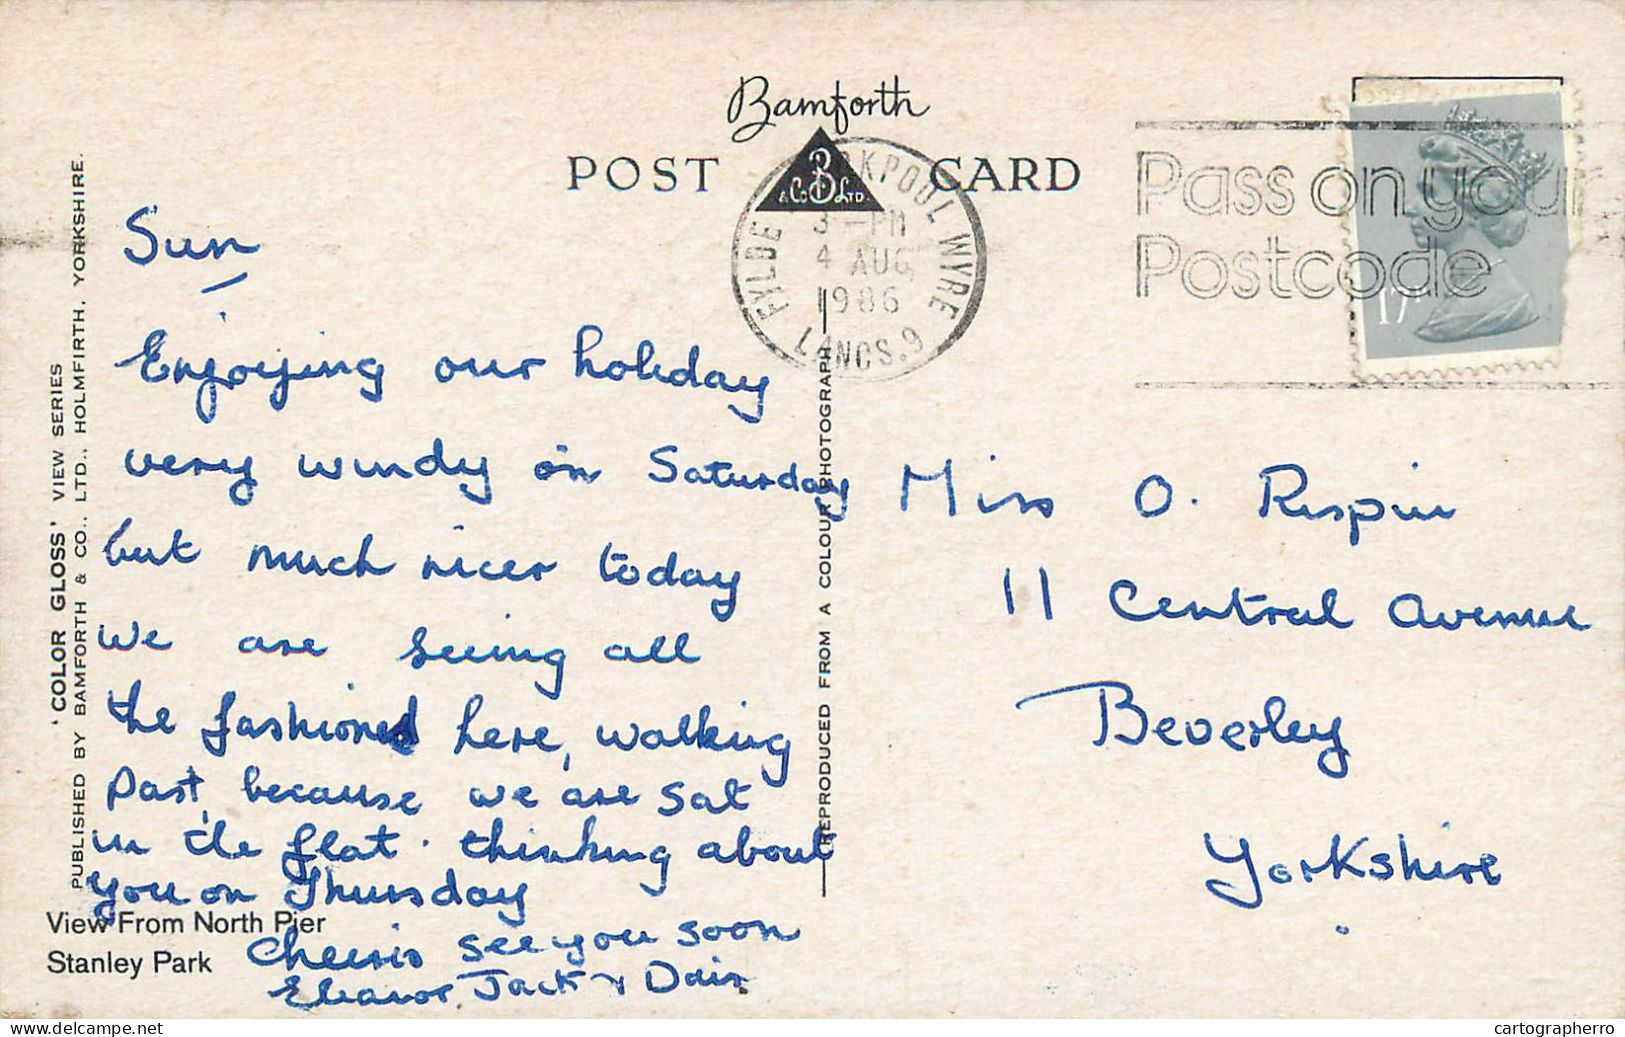 Bamforth
POST CARD
B
& Co LTD.
FYLDE BLACKPOOL WYRE
3 - PM
4 AUG
1986
LANCS. 9
Pass on your
Postcode
17
'COLOR GLOSS' VIEW SERIES
PUBLISHED BY BAMFORTH & CO., LTD., HOLMFIRTH, YORKSHIRE.
REPRODUCED FROM A COLOUR PHOTOGRAPH
Sun
Enjoying our holiday
very windy on Saturday
but much nicer today
we are seeing all
the fashions here, walking
past, because we are sat
in the flat. thinking about
you on Thursday
Cheerio see you soon
Eleanor Jack &
Miss O.
11 Central Avenue
Beverley
Yorkshire
View From North Pier
Stanley Park
delcampe.net
cartographerro